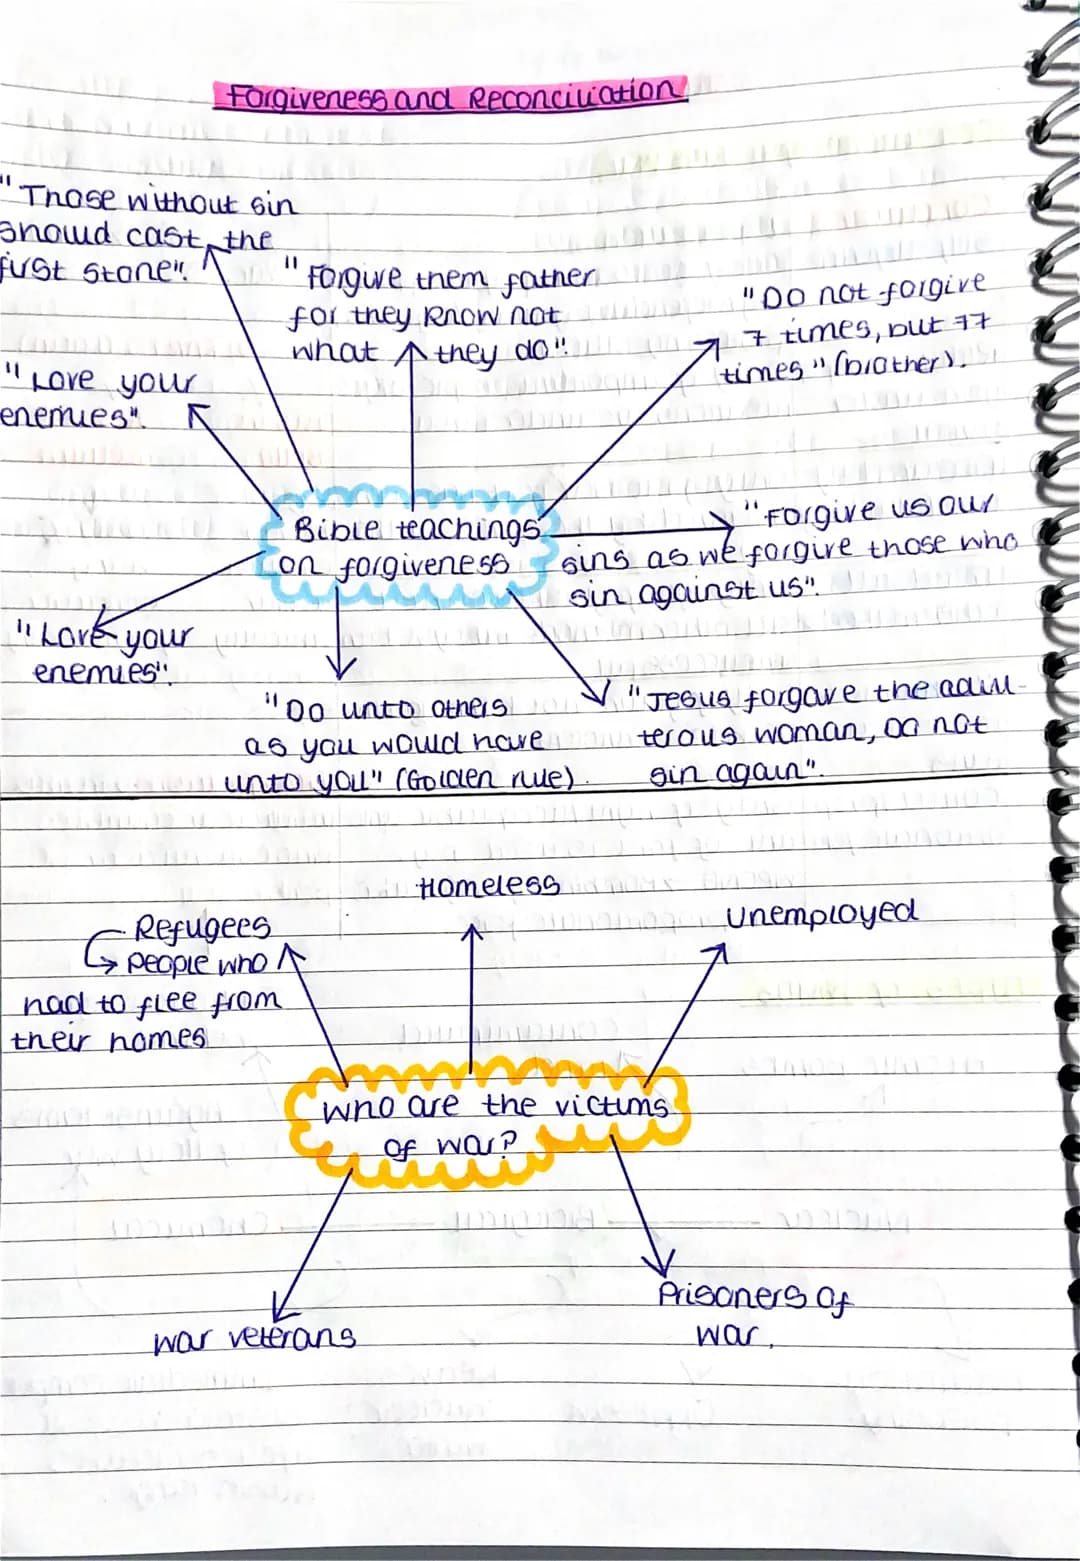 Forgiveness and Reconciliation
"Those without sin
should cast the
first stone".
"Forgive them father
for they know not
what they do".
"Do not forgive
7 times, but 77
times" (brother).
"Love your
enemies".
Bible teachings
on forgiveness
"Forgive us our
sins as we forgive those who
sin against us".
"Love your
enemies".
"Do unto others
as you would have
unto you" (Golden rule).
"Jesus forgave the adul-
terous woman, Do not
sin again".
Homeless
Refugees
people who
had to flee from
their homes
Unemployed
who are the victims
of war?
war veterans
Prisoners of
war.